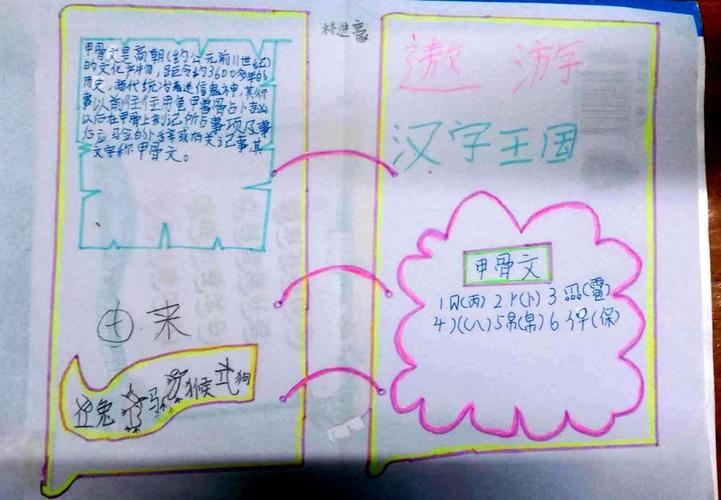 林进豪
甲骨文是商朝(约公元前11世纪)
的文化产物,距今约3600多年的
历史,商代统治者迷信鬼神,其行
事以前往往用龟甲兽骨占卜吉凶
以后在甲骨上刻记所占事项及事
后应 的卜 或有关记事其
文字称甲骨文。
由来
兔 马 猴 狗
遨 游
汉字王国
甲骨文
1. (丙) 2 卜(卜) 3. (雹)
4 )((八) 5 帛(帛) 6 (保)